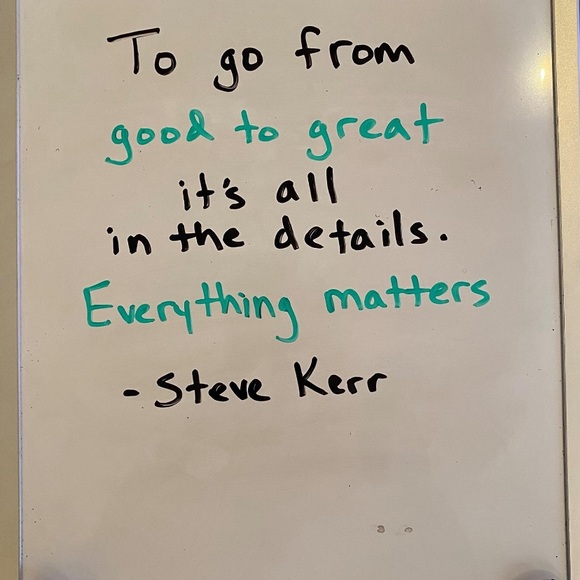 To go from
good to great
it's all
in the details.
Everything matters
- Steve Kerr